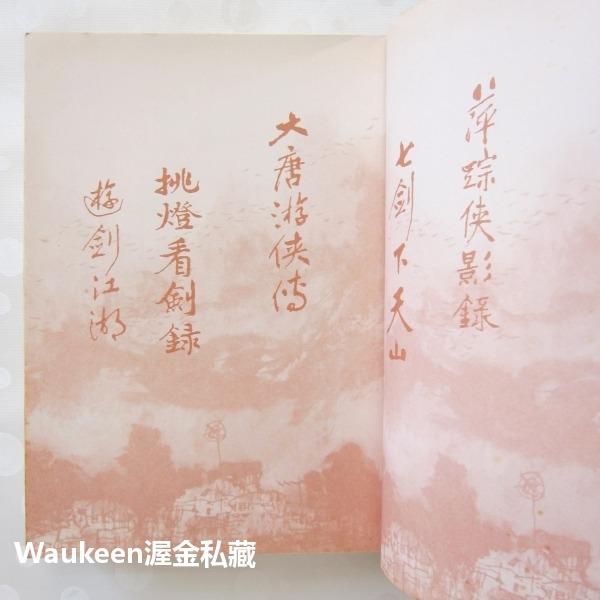 萍踪俠影錄
七剑下天山
大唐游俠傳
挑燈看劍録
遊剑江湖
Waukeen渥金私藏